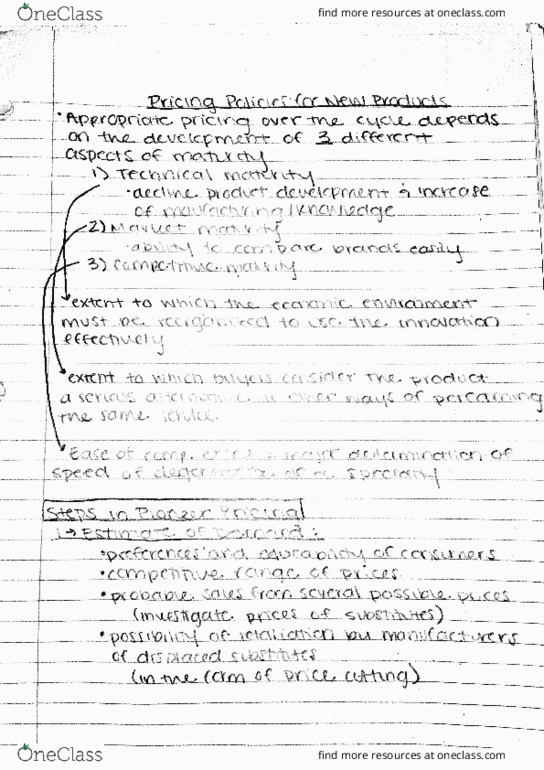 OneClass
find more resources at oneclass.com
Pricing Policies for New Products
• Appropriate pricing over the cycle depends
on the development of 3 different
aspects of maturity
1) Technical maturity
• decline product development & increase
of manufacturing/knowledge
2) Market maturity
• ability to compare brands easily
3) competitive maturity
• extent to which the economic environment
must be reorganized to use the innovation
effectively
• extent to which buyers consider the product
a serious alternative to other ways of performing
the same service.
• Ease of comp. major determination of
speed of of a specialty
Steps in Pioneer Pricing
1 → Estimate of Demand:
• preferences and educability of consumers
• competitive range of prices
• probable sales from several possible prices
(investigate prices of substitutes)
• possibility of retaliation by manufacturers
of displaced substitutes
(in the form of price cutting)
OneClass
find more resources at oneclass.com